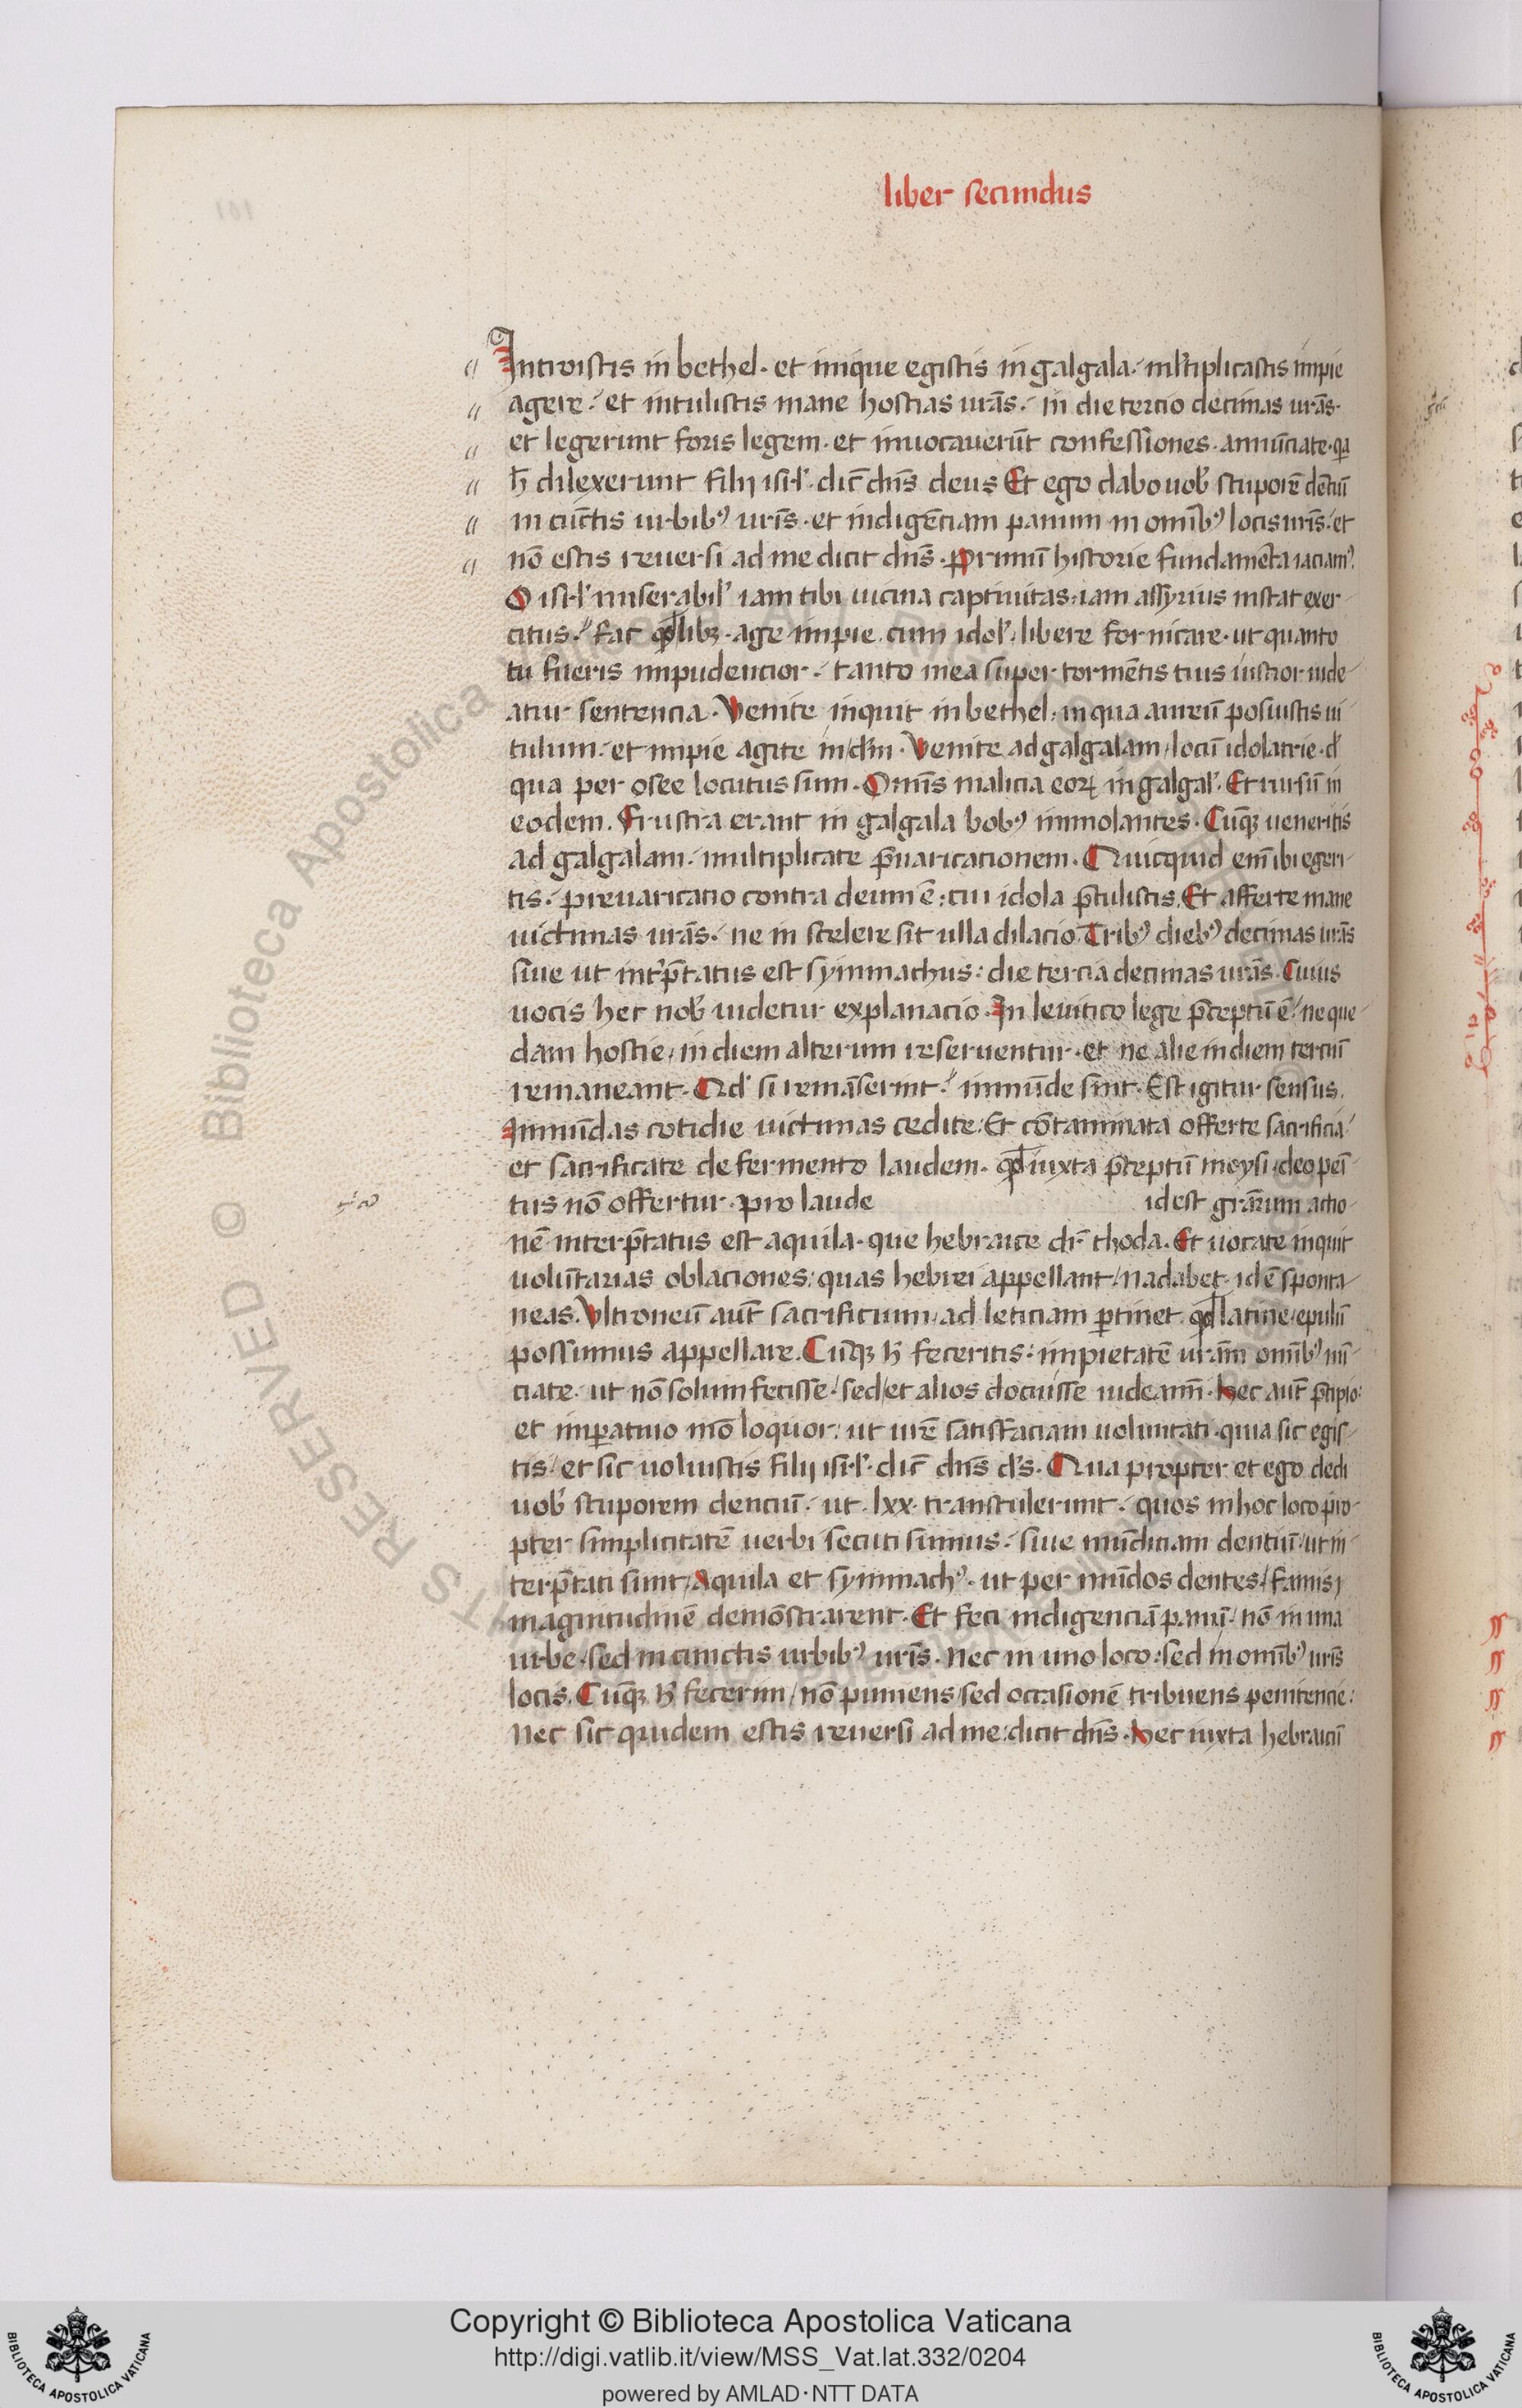 liber secundus
Introistis in bethel · et inique egistis in galgala / ml̄tiplicastis impie
agere / et intulistis mane hostias ur̄as / in die tercio decimas ur̄as ·
et legerunt foris legem · et inuocauerūt confessiones · annūciate · qa
h̄ dilexerunt filij isrl' · dic̄ dn̄s deus Et ego dabo uob' stuporē dētiū
in cūctis urbib⁹ ur̄is · et indigēciam panum in omīb⁹ locis ur̄is / et
nō estis reuersi ad me dicit dn̄s · Primū historie fundamēta iaciam⁹
O isrl' miserabil' iam tibi uicina captiuitas / iam assyrius instat exer
citus / fac qd̄libꝫ · age impie cum idol' / libere fornicare · ut quanto
tu fueris impudencior / tanto mea super tormētis tuis iustior uide
atur sentencia · Venite inquit in bethel / in qua aureū posuistis ui
tulum / et impie agite in dm̄ · Venite ad galgalam / locū idolatrie · d'
qua per osee locutus sum · Omīs malicia eoꝝ in galgal' · Et rursū in
eodem · Frustra erant in galgala bob⁹ immolantes · Cūqꝫ ueneritis
ad galgalam / multiplicate p̄uaricationem · Quicquid em̄ ibi egeri
tis / preuaricatio contra deum ē / cui idola p̄tulistis · Et afferte mane
uictimas ur̄as / ne in scelere sit ulla dilacio Trib⁹ dieb⁹ decimas ur̄as
siue ut int'p̄tatus est symmachus / die tercia decimas ur̄as · Cuius
uocis hec nob' uidetur explanacio · In leuitico lege p̄ceptū ē / ne que
dam hostie / in diem alterum reseruentur · et ne alie in diem terciū
remaneant · Qd' si remāserint / immūde sint · Est igitur sensus ·
Immūdas cotidie uictimas cedite / Et cōtaminata offerte sacrificia /
et sacrificate de fermento laudem · qd̄ iuxta p̄ceptū moysi / deo peī
tus nō offertur · pro laude idest gr̄arum actio
nē interp̄tatus est aquila · que hebraice dr̄ thoda · Et uocate inquit
uolūtarias oblaciones / quas hebrei appellant / nadabet · id ē sponta
neas · Vltroneū aūt sacrificium / ad leticiam p̄tinet qd̄ latine / epulū
possumus appellare · Cūqꝫ h̄ feceritis / impietatē ur̄am omīb⁹ nū
ciate · ut nō solum fecisse / sed et alios docuisse uideam̄ · Hec aūt p̄cipio /
et imp̄atiuo mō loquor / ut ur̄e satisfaciam uoluntati · quia sic egis
tis / et sic uoluistis filij isrl' · dic̄ dn̄s d's · Qua propter et ego dedi
uob' stuporem dentiū / ut · lxx · transtulerunt / quos in hoc loco pro
pter simplicitatē uerbi secuti sumus / siue mūdiciam dentiū / ut in
terp̄tati sunt / Aquila et symmach⁹ · ut per mūdos dentes / famis
magnitudinē demōstrarent · Et feci indigenciā panū / nō in una
urbe / sed in cunctis urbib⁹ ur̄is · Nec in uno loco / sed in omīb⁹ ur̄is
locis · Cūqꝫ h̄ fecerim / nō puniens / sed occasionē tribuens penitencie /
Nec sic quidem estis reuersi ad me / dicit dn̄s · Hec iuxta hebraicū
RESERVED © Biblioteca Apostolica
Copyright © Biblioteca Apostolica Vaticana
http://digi.vatlib.it/view/MSS_Vat.lat.332/0204
powered by AMLAD·NTT DATA
BIBLIOTECA APOSTOLICA VATICANA
BIBLIOTECA APOSTOLICA VATICANA